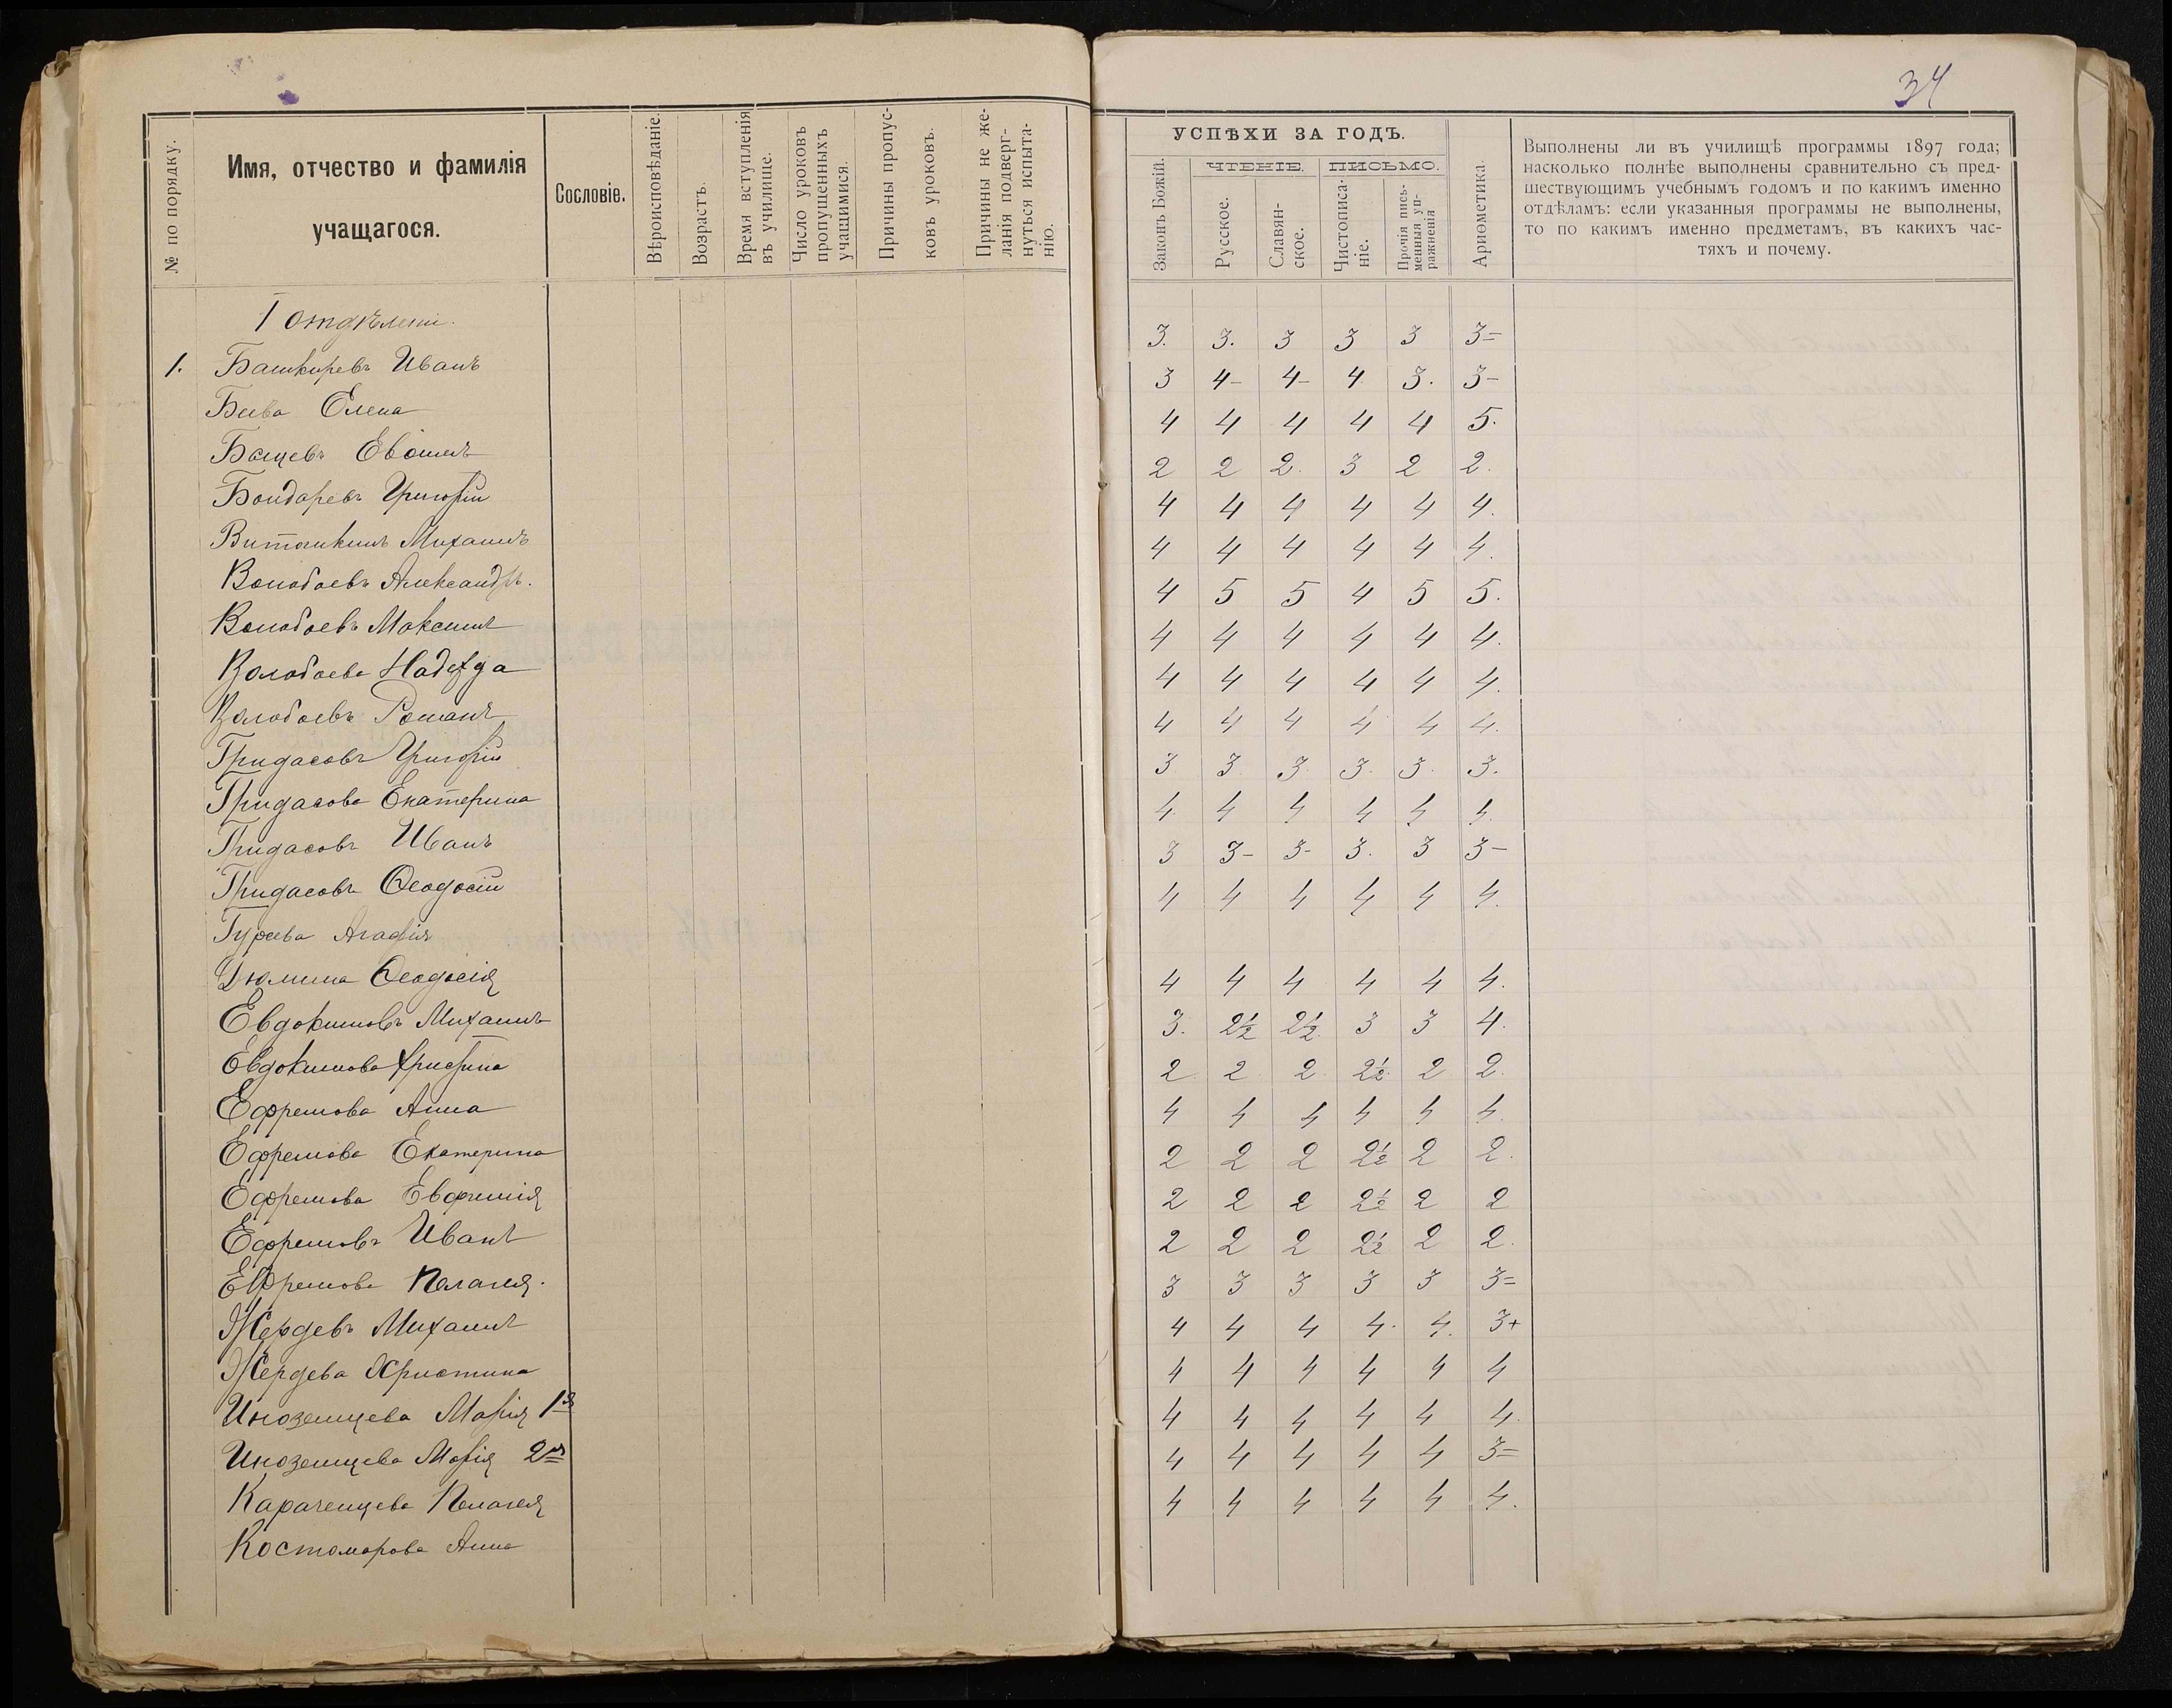 34
№ по порядку.
Имя, отчество и фамилія
учащагося.
Сословіе.
Вѣроисповѣданіе.
Возрастъ.
Время вступленія
въ училище.
Число уроковъ
пропущенныхъ
учащимися.
Причины пропус-
ковъ уроковъ.
Причины не же-
ланія подверг-
нуться испыта-
нію.
УСПѢХИ ЗА ГОДЪ.
Законъ Божій.
ЧТЕНІЕ.
ПИСЬМО.
Русское.
Славян-
ское.
Чистописа-
ніе.
Прочія пись-
менныя уп-
ражненія
Ариѳметика.
Выполнены ли въ училищѣ программы 1897 года;
насколько полнѣе выполнены сравнительно съ пред-
шествующимъ учебнымъ годомъ и по какимъ именно
отдѣламъ: если указанныя программы не выполнены,
то по какимъ именно предметамъ, въ какихъ час-
тяхъ и почему.
I отдѣлени.
1. Башкиревъ Иванъ 3. 3. 3 3 3 3=
Елена 3 4- 4- 4 3. 3-
4 4 4 4 4 5.
Бондаревъ Григорій 2 2 2. 3 2 2.
Михаилъ 4 4 4 4 4 4.
Волобоевъ Александръ. 4 4 4 4 4 4.
Волобоевъ Максимъ 4 5 5 4 5 5.
Волобоева Надежда 4 4 4 4 4 4.
Волобоевъ Романъ 4 4 4 4 4 4.
Гридасовъ Григорій 4 4 4 4 4 4.
Гридасова Екатерина 3 3 3 3. 3. 3.
Гридасовъ Иванъ 4 4 4 4 4 4.
Гридасовъ Ѳеодосій 3 3- 3- 3. 3 3-
Гурева Агафія 4 4 4 4 4 4.
Дюмина Ѳеодосія
Евдокимовъ Михаилъ 4 4 4 4 4 4.
Евдокимова Христина 3. 2½ 2½ 3 3 4.
Ефремова Анна 2 2 2 2½ 2 2.
Ефремова Екатерина 4 4 4 4 4 4.
Ефремова Евфимія 2 2 2 2½ 2 2.
Ефремовъ Иванъ 2 2 2 2½ 2 2
Ефремова Пелагея. 2 2 2 2½ 2 2.
Жердевъ Михаилъ 3 3 3 3 3 3=
Жердева Христина 4 4 4 4. 4. 3+
Иноземцева Марія 1я 4 4 4 4 4 4
Иноземцева Марія 2я 4 4 4 4 4 4.
Караченцева Пелагея 4 4 4 4 4 3=
Костомарова Анна 4 4 4 4 4 4.